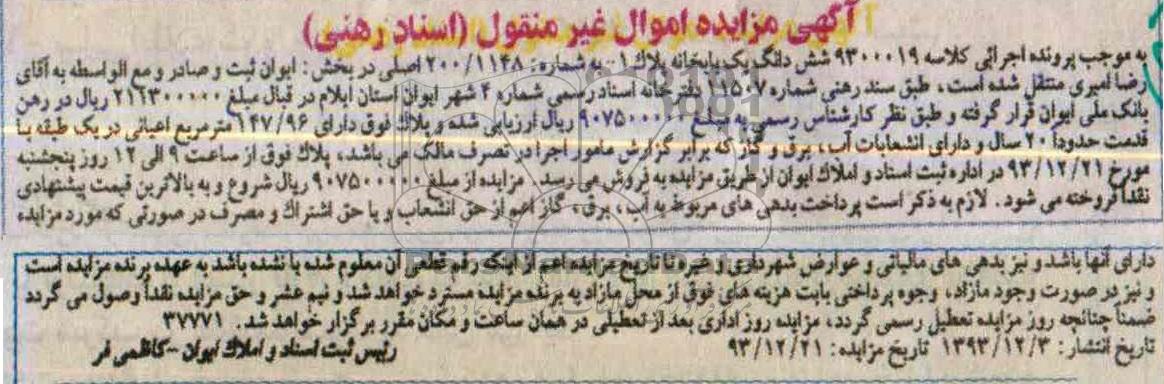 آگهی مزایده اموال غیر منقول (اسناد رهنی)
به موجب پرونده اجرائی کلاسه ۹۳۰۰۰۱۹ شش دانگ یک بابخانه پلاک ۱- به شماره: ۲۰۰/۱۱۴۸ اصلی در بخش: ایوان ثبت و صادر و مع الواسطه به آقای
رضا امیری منتقل شده است، طبق سند رهنی شماره ۱۱۵۰۷ دفترخانه اسناد رسمی شماره ۴ شهر ایوان استان ایلام در قبال مبلغ ۲۱۶۳۰۰۰۰۰ ریال در رهن
بانک ملی ایوان قرار گرفته و طبق نظر کارشناس رسمی به مبلغ ۹۰۷۵۰۰۰۰۰ ریال ارزیابی شده و پلاک فوق دارای ۱۴۷/۹۶ مترمربع اعیانی در یک طبقه با
قدمت حدوداً ۲۰ سال و دارای انشعابات آب، برق و گاز که برابر گزارش مامور اجرا در تصرف مالک می باشد، پلاک فوق از ساعت ۹ الی ۱۲ روز پنجشنبه
مورخ ۹۳/۱۲/۲۱ در اداره ثبت اسناد و املاک ایوان از طریق مزایده به فروش می رسد. مزایده از مبلغ ۹۰۷۵۰۰۰۰۰ ریال شروع و به بالاترین قیمت پیشنهادی
نقداً فروخته می شود. لازم به ذکر است پرداخت بدهی های مربوط به آب، برق، گاز اعم از حق انشعاب و یا حق اشتراک و مصرف در صورتی که مورد مزایده
دارای آنها باشد و نیز بدهی های مالیاتی و عوارض شهرداری و غیره تا تاریخ مزایده اعم از اینکه رقم قطعی آن معلوم شده یا نشده باشد به عهده برنده مزایده است
و نیز در صورت وجود مازاد، وجوه پرداختی بابت هزینه های فوق از محل مازاد به برنده مزایده مسترد خواهد شد و نیم عشر و حق مزایده نقداً وصول می گردد
ضمناً چنانچه روز مزایده تعطیل رسمی گردد، مزایده روز اداری بعد از تعطیلی در همان ساعت و مکان مقرر برگزار خواهد شد. ۳۷۷۷۱
تاریخ انتشار: ۱۳۹۳/۱۲/۳ تاریخ مزایده: ۹۳/۱۲/۲۱
رئیس ثبت اسناد و املاک ایوان - کاظمی فر